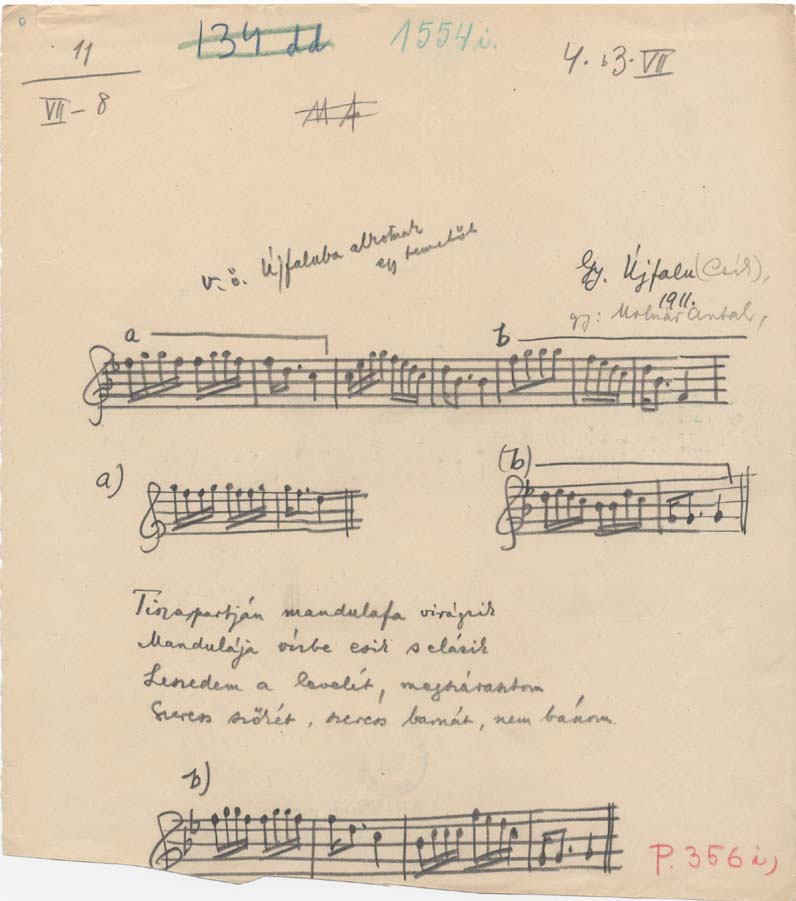 11
VII – 8
134 dd
1554 i.
4. b3. VII
MA
v. ö. Újfaluba alkotnak
egy temetőt
Gy. Újfalu (Csík),
1911.
gy: Molnár Antal,
a
b
a)
(b)
Tiszapartján mandulafa virágzik
Mandulája vízbe esik s elázik
Leszedem a levelét, megszárasztom
Szeress szőkét, szeress barnát, nem bánom.
b)
P. 356 i,